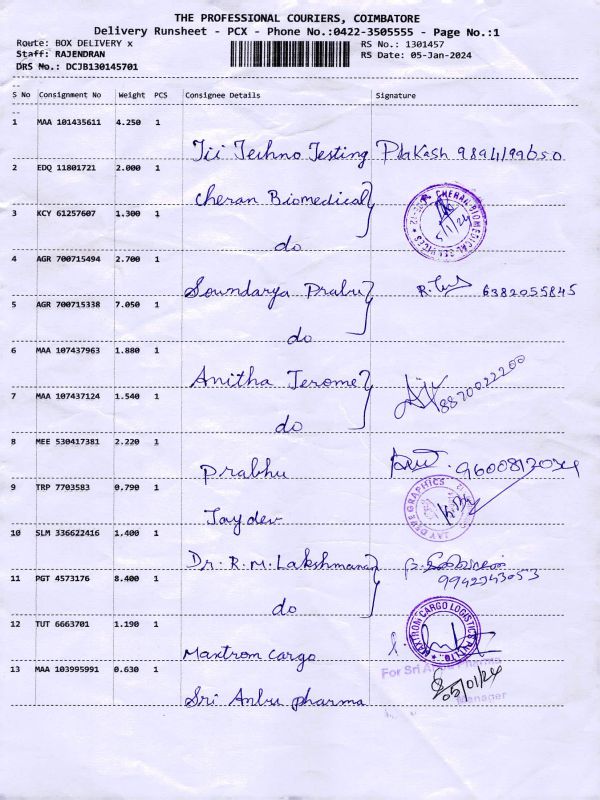 THE PROFESSIONAL COURIERS, COIMBATORE
Delivery Runsheet - PCX - Phone No.:0422-3505555 - Page No.:1
Route: BOX DELIVERY x
Staff: RAJENDRAN
DRS No.: DCJB130145701
RS No.: 1301457
RS Date: 05-Jan-2024
S No Consignment No Weight PCS Consignee Details Signature
1 MAA 101435611 4.250 1
Tii Techno Testing Prakash
2 EDQ 11801721 2.000 1
Cheran Biomedical
CHERAN BIOMEDICAL SERVICES
5/1/24
3 KCY 61257607 1.300 1
do
4 AGR 700715494 2.700 1
Soundarya Prabu R. 6382055845
5 AGR 700715338 7.050 1
do
6 MAA 107437963 1.880 1
Anitha Jerome 8870022200
7 MAA 107437124 1.540 1
do
8 MEE 530417381 2.220 1
Prabhu
9 TRP 7703583 0.790 1
Jaydev
10 SLM 336622416 1.400 1
Dr. R.M. Lakshmanan
9942343053
11 PGT 4573176 8.400 1
do
12 TUT 6663701 1.190 1
Maxtrom Cargo
MAXTRON CARGO LOGISTICS PVT LTD.
13 MAA 103995991 0.630 1
Sri Anbu pharma
For Sri Anbu Pharma
05/01/24
Manager